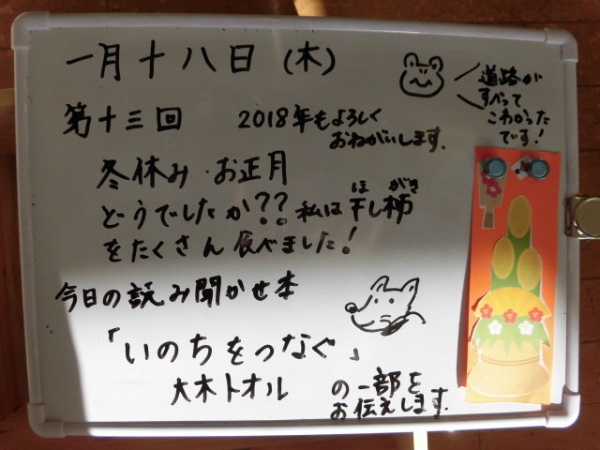 一月十八日(木)
道路が
すべって
こわかった
です!
第十三回 2018年もよろしく
おねがいします.
冬休み・お正月
どうでしたか??私は干し柿
ほ がき
をたくさん食べました!
今日の読み聞かせ本
「いのちをつなぐ」
大木トオル の一部を
お伝えします.